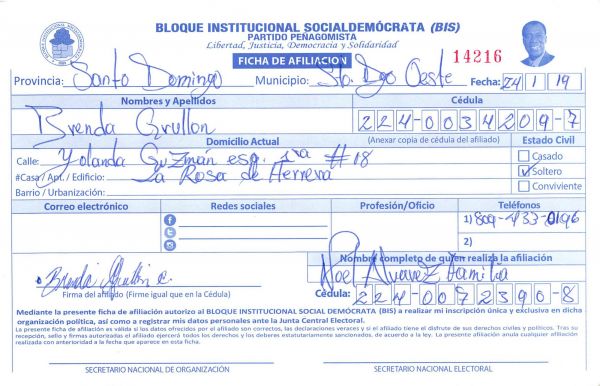 BLOQUE INSTITUCIONAL SOCIALDEMÓCRATA (BIS)
PARTIDO PEÑAGOMISTA
Libertad, Justicia, Democracia y Solidaridad
FICHA DE AFILIACION
14216
Provincia: Santo Domingo Municipio: Sto. Dgo Oeste Fecha: 24/1/19
Nombres y Apellidos Cédula
Brenda Grullon 224-0034209-7
Domicilio Actual (Anexar copia de cédula del afiliado) Estado Civil
Calle: Yolanda Guzmán esq. 1ra #18
Casado
#Casa / Apt. / Edificio: La Rosa de Herrera
Soltero
Barrio / Urbanización:
Conviviente
Correo electrónico Redes sociales Profesión/Oficio Teléfonos
1) 809-433-0196
2)
Nombre completo de quien realiza la afiliación
Brenda Grullon c. Noel Alvarez Familia
Firma del afiliado (Firme igual que en la Cédula) Cédula: 224-0072390-8
Mediante la presente ficha de afiliación autorizo al BLOQUE INSTITUCIONAL SOCIAL DEMÓCRATA (BIS) a realizar mi inscripción única y exclusiva en dicha
organización política, así como a registrar mis datos personales ante la Junta Central Electoral.
La presente ficha de afiliación es válida si las datos ofrecidos por el afiliado son correctos, las declaraciones veraces y si el afiliado tiene el disfrute de sus derechos civiles y políticos. Tras su
recepción, sello y firmas autorizadas el afiliado ejercerá todos los derechos y los deberes estatutariamente sancionados, de acuerdo a la ley. La presente afiliación anula cualquier afiliación
realizada con anterioridad a la fecha que aparece en esta ficha.
SECRETARIO NACIONAL DE ORGANIZACIÓN SECRETARIO NACIONAL ELECTORAL